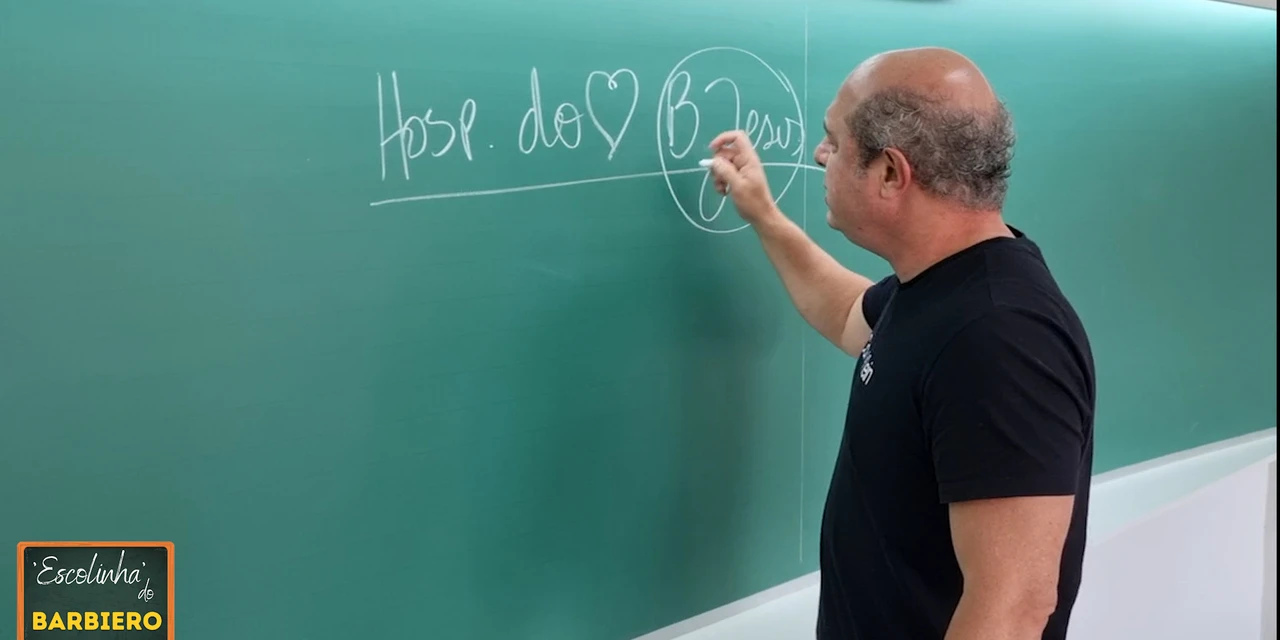 Hosp. do B Jesus
'Escolinha'
do
BARBIERO